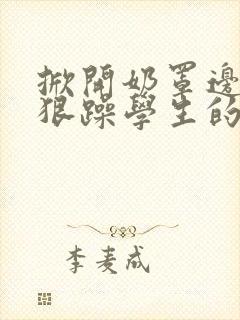 掀開奶罩邊
狠躁學生的
李麦成